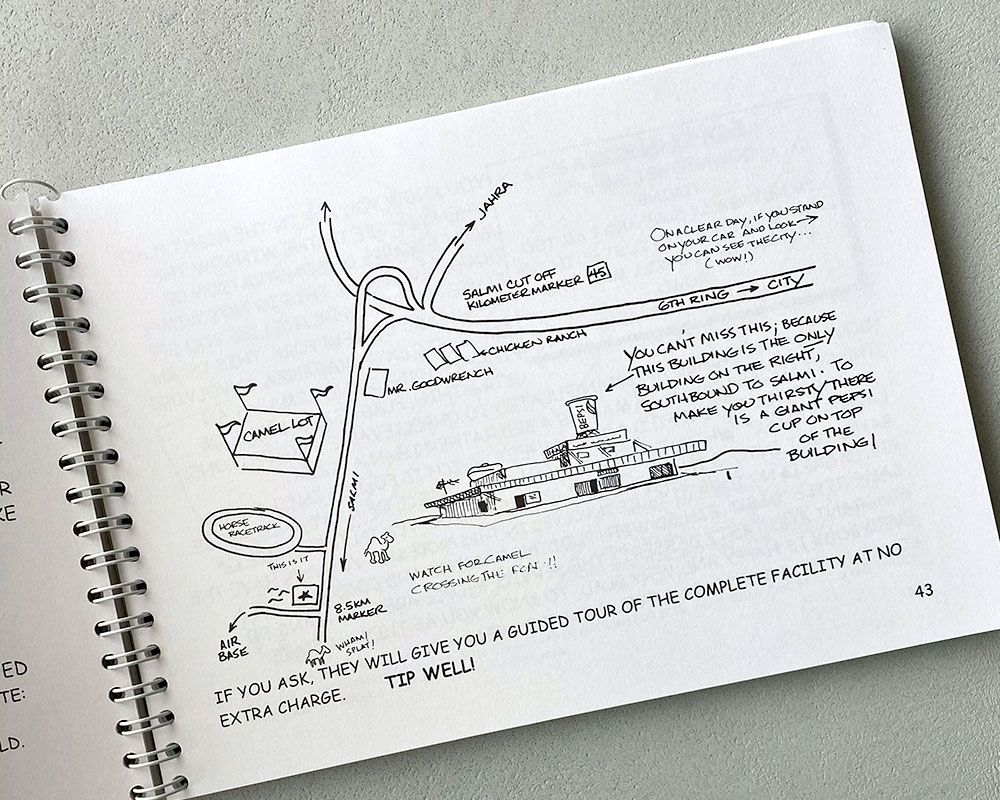 JAHRA
ON A CLEAR DAY, IF YOU STAND
ON YOUR CAR AND LOOK
YOU CAN SEE THE CITY...
(WOW!)
SALMI CUT OFF
KILOMETER MARKER 45
6TH RING → CITY
CHICKEN RANCH
MR. GOODWRENCH
YOU CAN'T MISS THIS; BECAUSE
THIS BUILDING IS THE ONLY
BUILDING ON THE RIGHT,
SOUTHBOUND TO SALMI. TO
MAKE YOU THIRSTY THERE
IS A GIANT PEPSI
CUP ON TOP
OF THE
BUILDING!
BEPSI
CAMEL LOT
SALMI
HORSE
RACETRACK
THIS IS IT
WATCH FOR CAMEL
CROSSING THE
8.5KM
MARKER
AIR
BASE
WHAM!
SPLAT!
IF YOU ASK, THEY WILL GIVE YOU A GUIDED TOUR OF THE COMPLETE FACILITY AT NO
EXTRA CHARGE. TIP WELL!
43
R
KE
ED
TE:
LD.